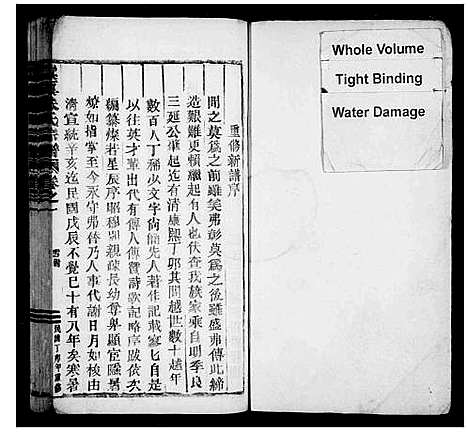 重修新譜序
聞之莫為之前雖美弗彰莫為之後雖盛弗傳此締
造艱難更賴繼起有人也伏查我族家乘自明季良
三延公肇起迄有清康熙丁卯其間越世數十越年
數百人丁稀少文字簡先人著作記載寥寥自是
以往英才輩出代有傳人傳贊詩歌記略序跋依次
編纂燦若星辰序昭穆別親疎長幼尊卑顯宦隱
燎如指掌至今永守弗替乃人事代謝日月如梭由
清宣統辛亥迄民國戊辰不覺已十有八年矣寒暑
Whole Volume
Tight Binding
Water Damage